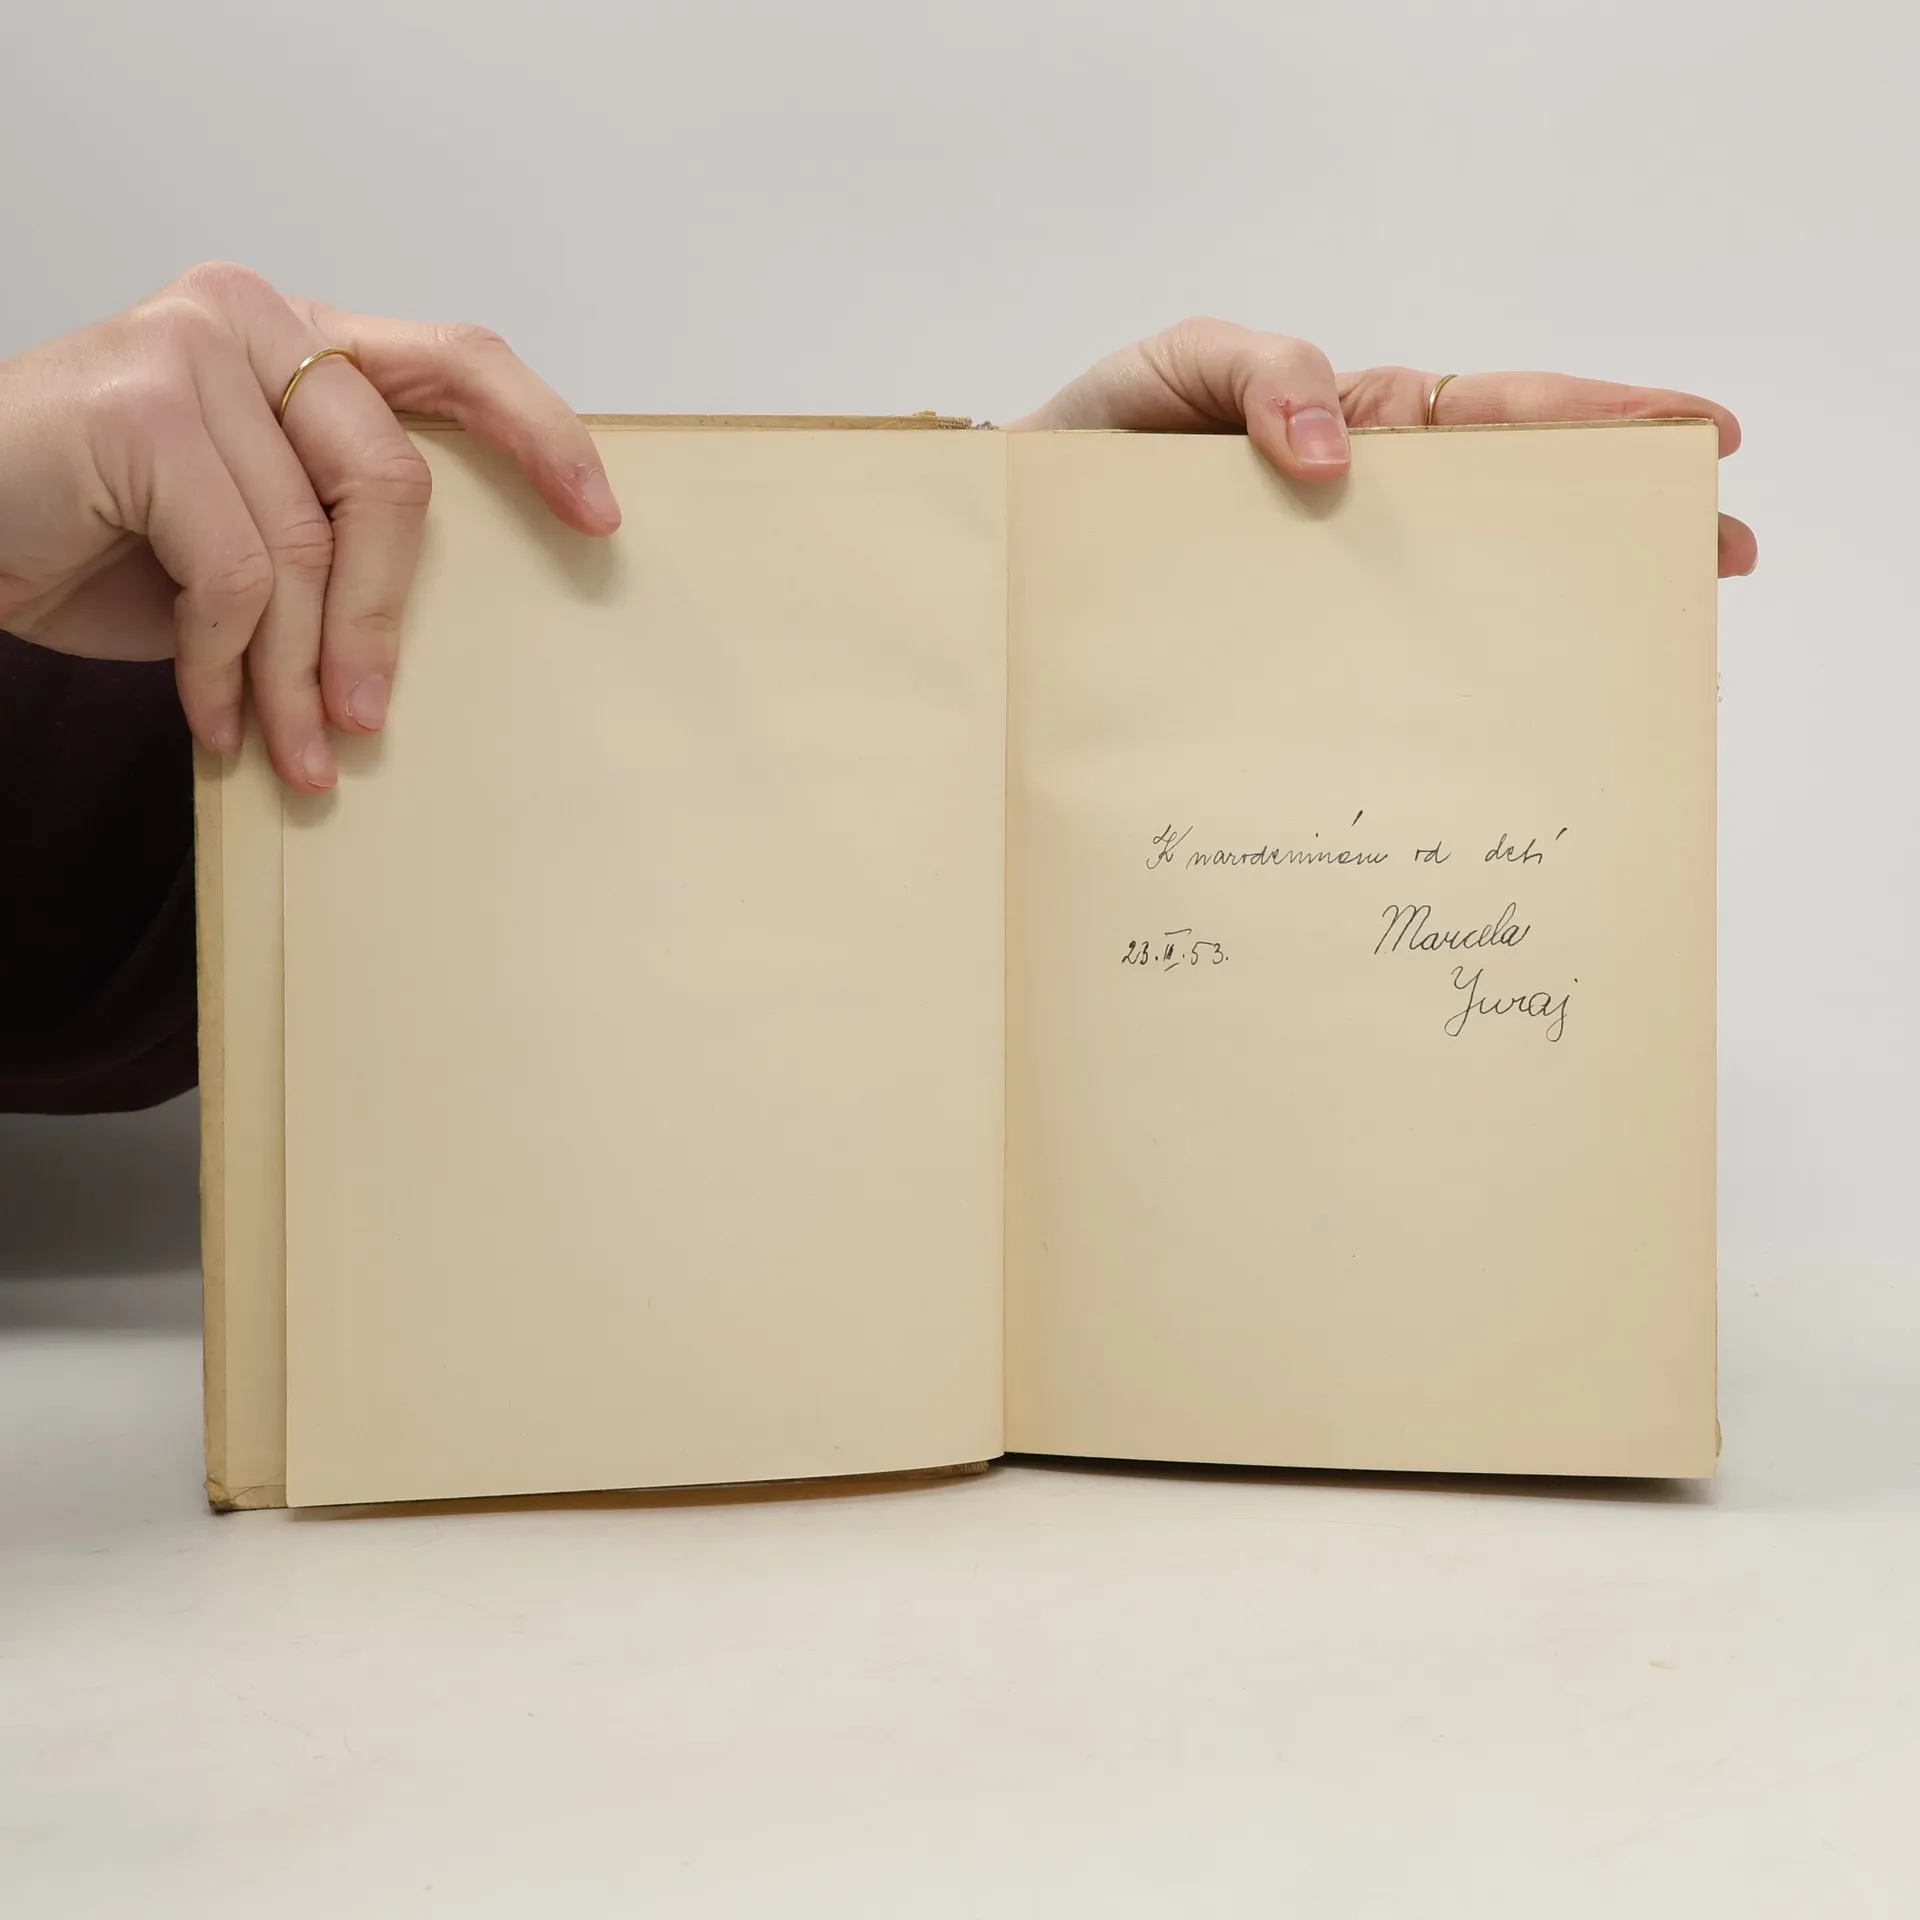 K narodeninám od detí
23.II.53.
Marcela
Juraj